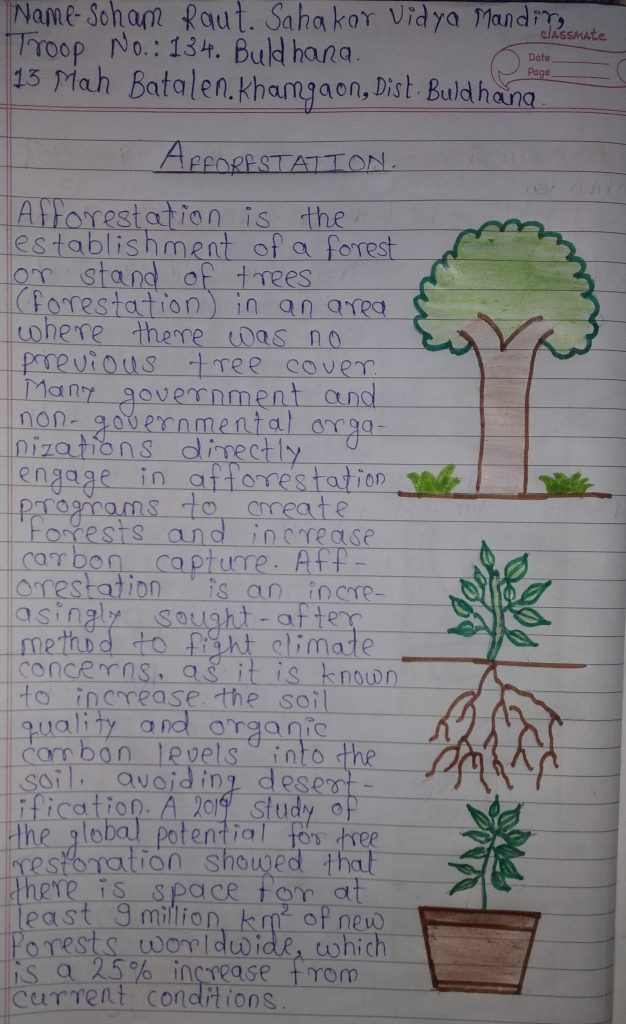 Name- Soham Raut. Sahakar Vidya Mandir,
CLASSMATE
Troop No.: 134. Buldhana.
Date
Page
13 Mah Batalen. Khamgaon, Dist. Buldhana.
AFFORESTATION.
Afforestation is the
establishment of a forest
or stand of trees
(forestation) in an area
where there was no
previous tree cover.
Many government and
non-governmental orga-
nizations directly
engage in afforestation
programs to create
forests and increase
carbon capture. Aff-
orestation is an incre-
asingly sought-after
method to fight climate
concerns, as it is known
to increase the soil
quality and organic
carbon levels into the
soil, avoiding desert-
ification. A 2019 study of
the global potential for tree
restoration showed that
there is space for at
least 9 million km² of new
forests worldwide, which
is a 25% increase from
current conditions.